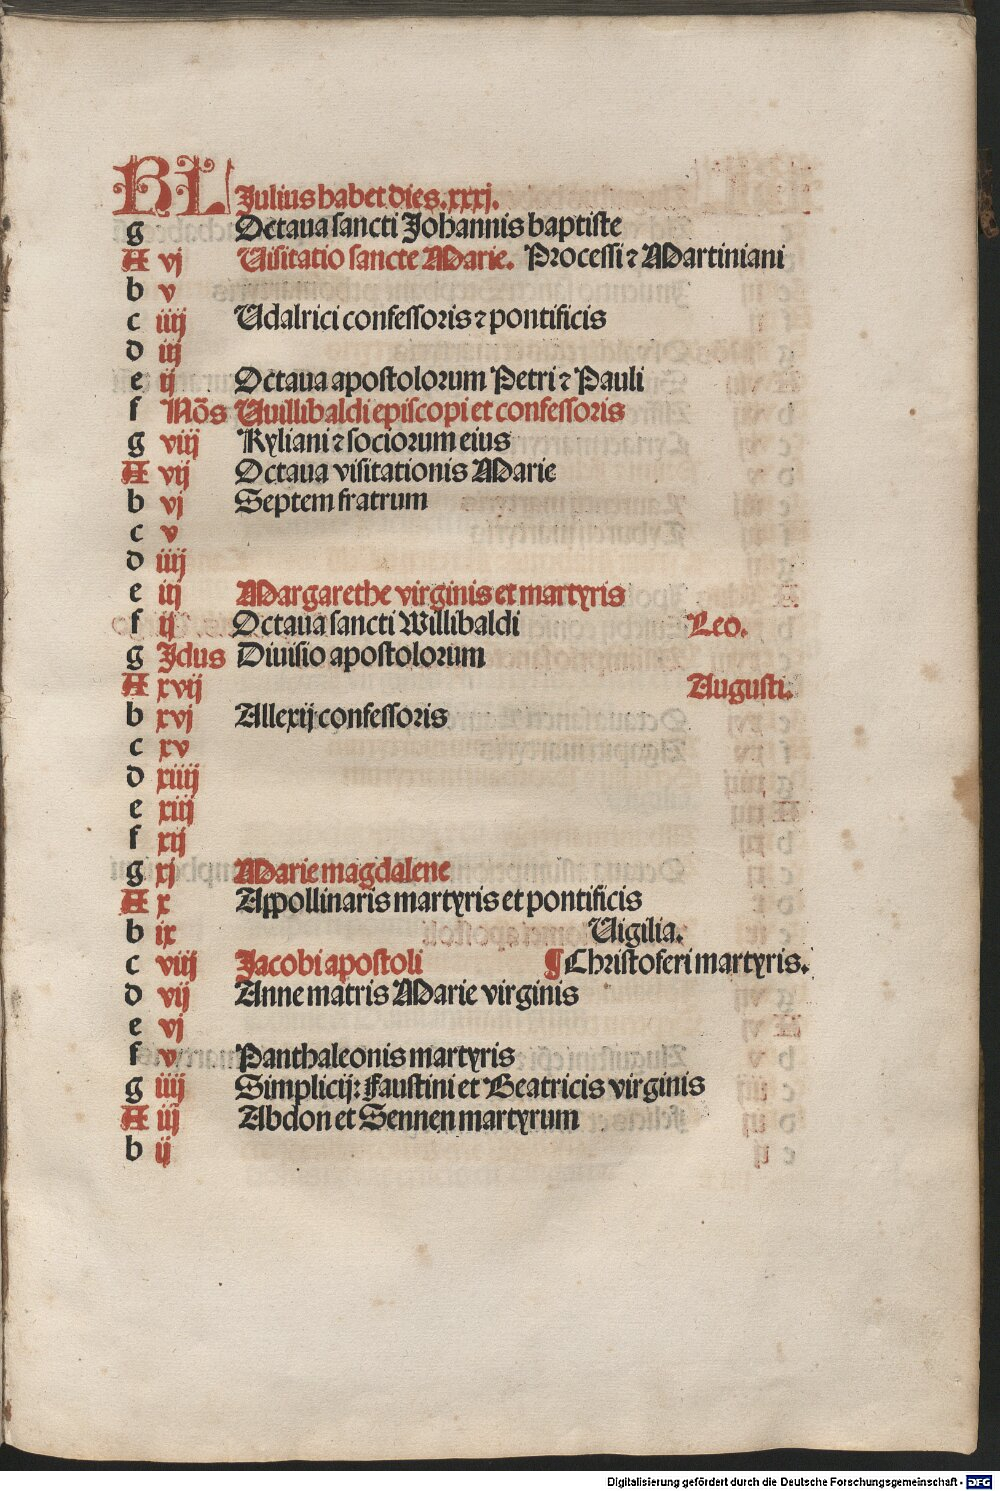 KL Julius habet dies .xxxj.
g Octaua sancti Johannis baptiste
A vj Uisitatio sancte Marie. Processi ⁊ Martiniani
b v
c iiij Udalrici confessoris ⁊ pontificis
d iij
e ij Octaua apostolorum Petri ⁊ Pauli
f Nōs Uuillibaldi episcopi et confessoris
g viij Kyliani ⁊ sociorum eius
A vij Octaua visitationis Marie
b vj Septem fratrum
c v
d iiij
e iij Margarethe virginis et martyris
f ij Octaua sancti Willibaldi Leo.
g Jdus Diuisio apostolorum
A xvij Augusti.
b xvj Allexij confessoris
c xv
d xiiij
e xiij
f xij
g xj Marie magdalene
A x Appollinaris martyris et pontificis
b ix Uigilia.
c viij Jacobi apostoli ¶ Christoferi martyris.
d vij Anne matris Marie virginis
e vj
f v Panthaleonis martyris
g iiij Simplicij: Faustini et Beatricis virginis
A iij Abdon et Sennen martyrum
b ij
Digitalisierung gefördert durch die Deutsche Forschungsgemeinschaft - DFG